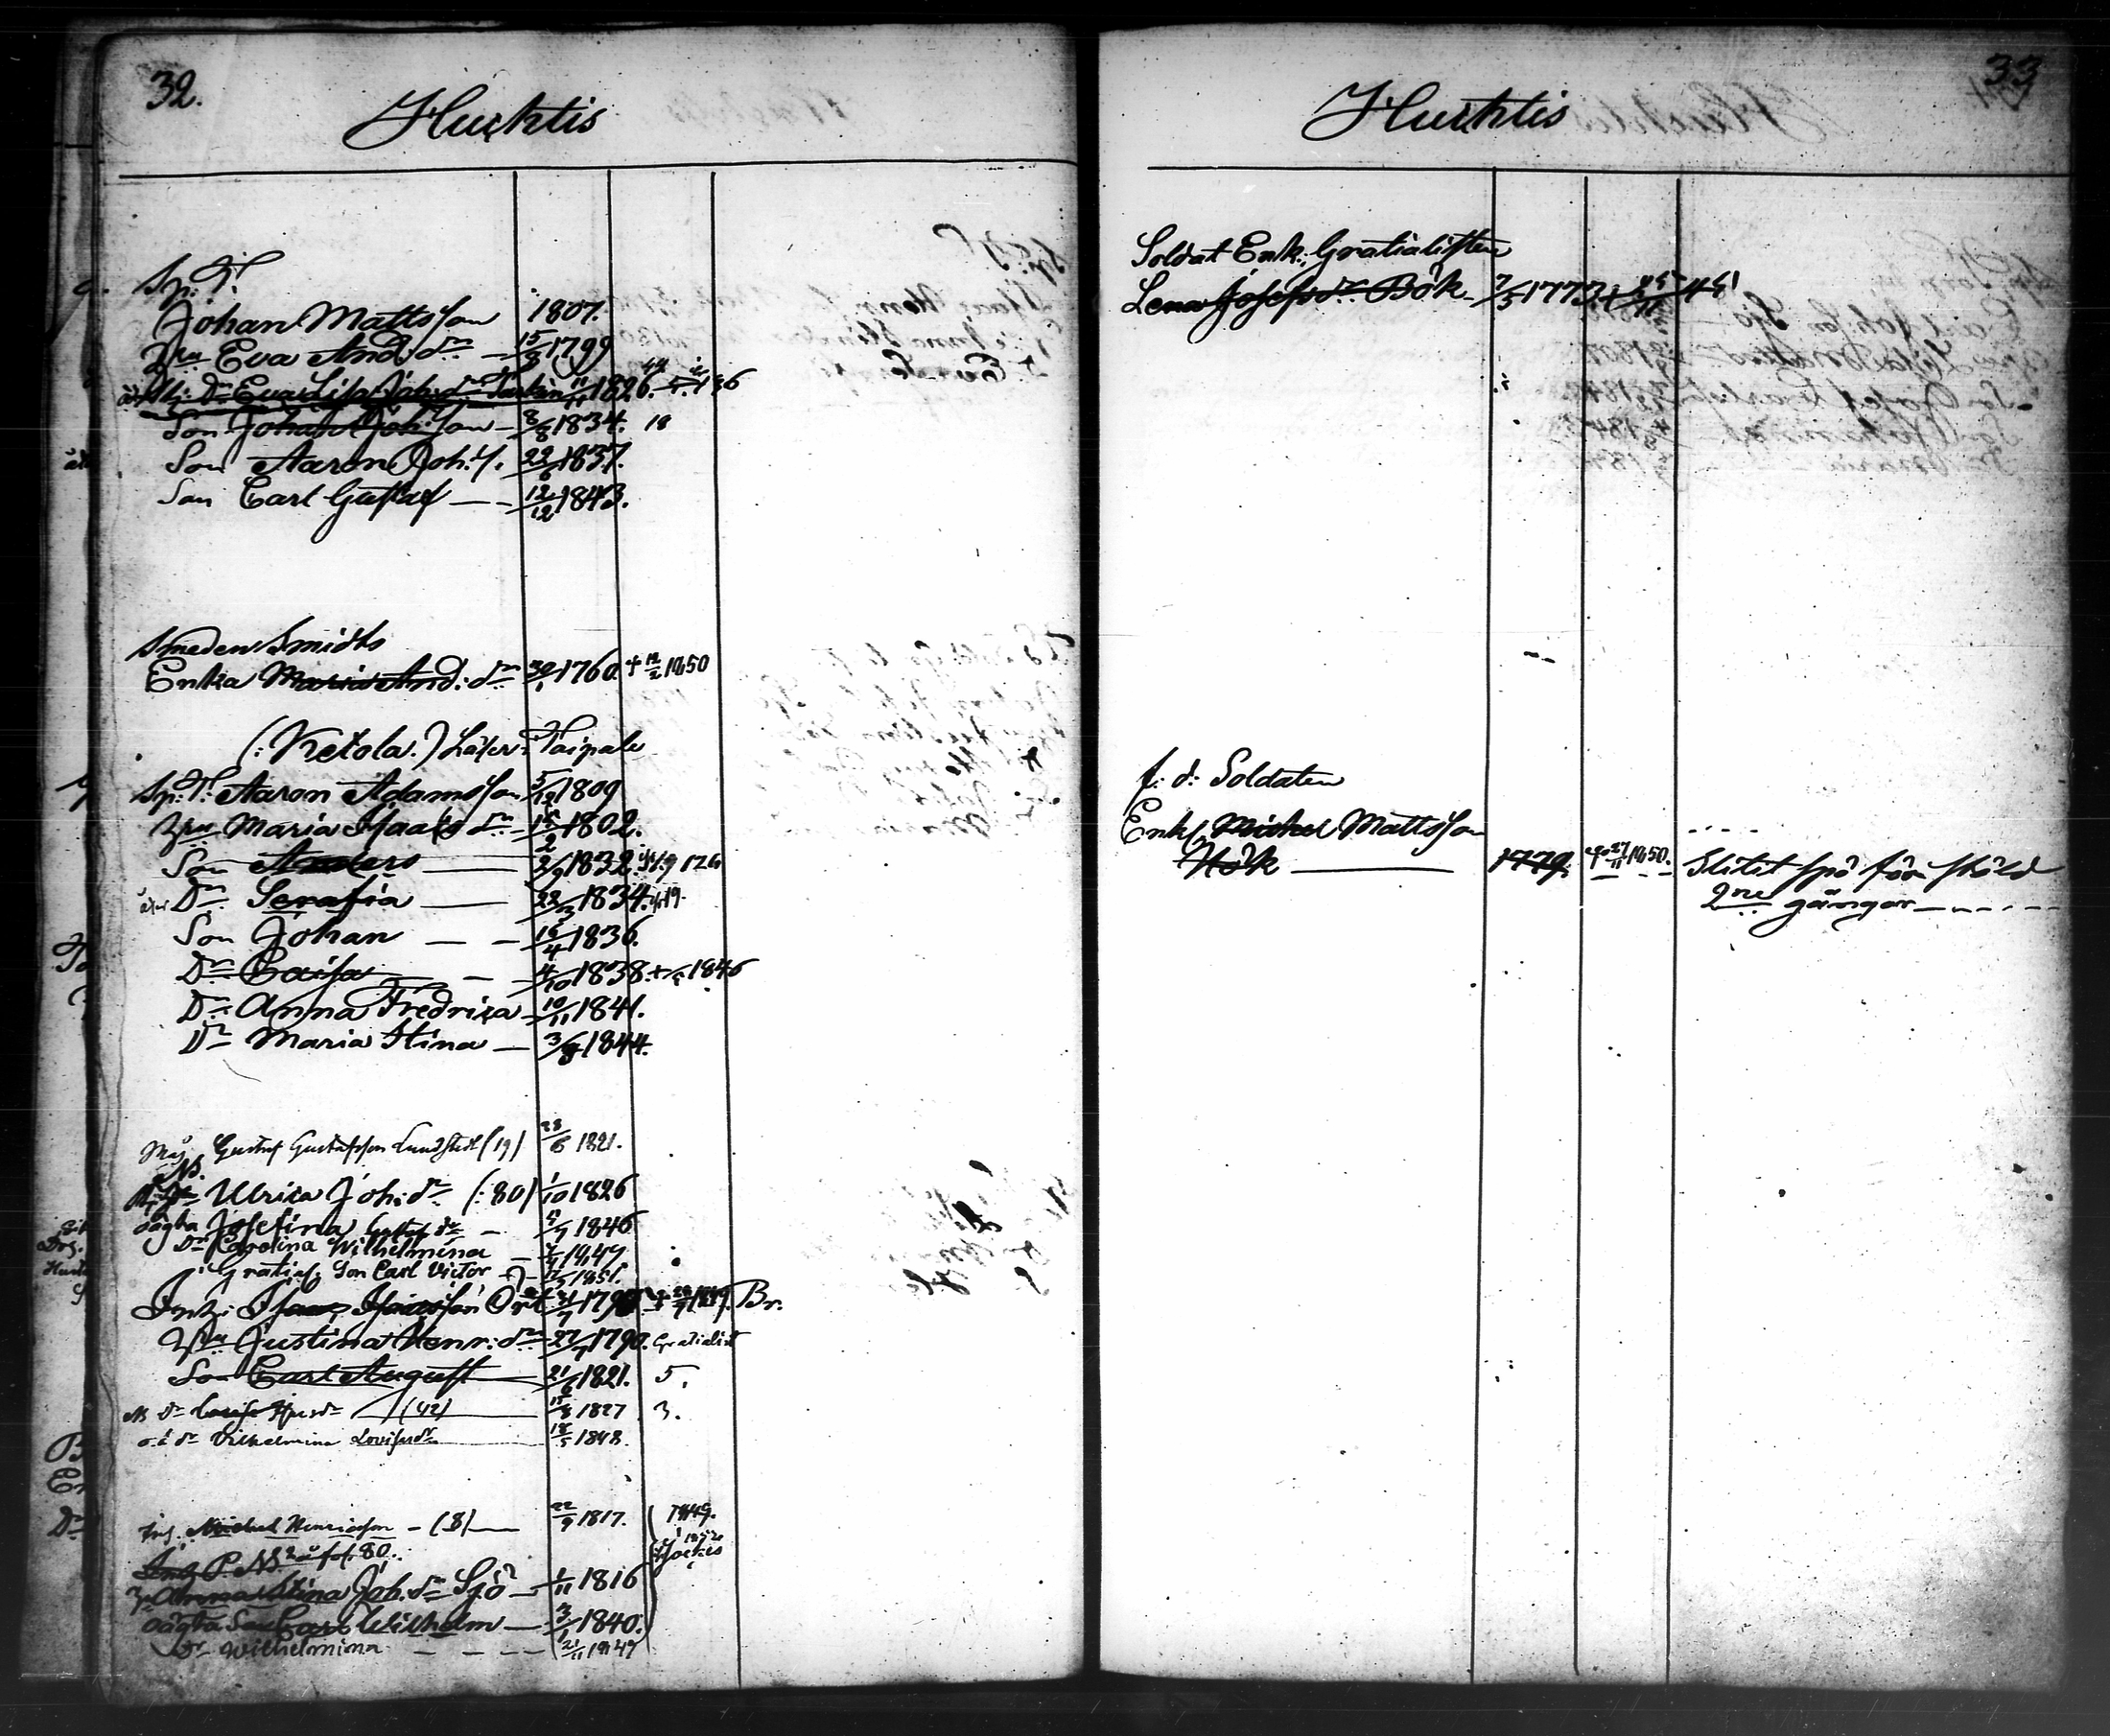 32.
Huhtis
Sp: T:
Johan Mattsson 1807.
Hru Eva And: dr 15/8 1799
Dr Eva Lisa Joh: dr 1826.
Son Johan Joh:son 8/8 1834. 18
Son Aaron Joh: s. 22/6 1837.
Son Carl Gustaf 12/12 1843.
Smeden Smidts
Enka Maria And: dr 30/1 1760. + 12/2 1850
(: Ketola.) Säter: Taipale
Sp: T: Aaron Adamsson 5/12 1809
Hru Maria Isaaks dr 15/2 1802.
Son Anders 2/9 1832.
Dr Serafia 22/3 1834. 19.
Son Johan 16/4 1836.
Dr Caisa 4/10 1838. + 1846
Dr Anna Fredrica 10/11 1841.
Dr Maria Stina 3/8 1844.
Gustaf Gustafsson Lundstedt (19) 23/6 1821.
Ulrica Joh: dr (: 80) 1/10 1826
oägta Josefina Gustaf dr 1846
Dr Carolina Wilhelmina 1847
Son Carl Victor 1851.
Inh: Isaac Isaacsson Ört 31/7 1849. Br.
Hru Justina Henr: dr 27/7 1790. Gratialist
Son Carl August 21/6 1821. 5.
dr Lovisa (42) 1827 3.
o. ä dr Vilhelmina Lovisadr 18/5 1848.
Inh. Michel Henricsson - (8) 22/9 1817. 1849.
fol. 80. Jockis
Anna Stina Joh: dr Sjö 1/11 1816
oägta Son Carl Wilhelm 3/1 1840.
Dr Wilhelmina 21/11 1849
33
Huhtis
Soldat Enk: Gratialisten
Lena Josefs dr Bök 7/5 1773 + 45
f: d: Soldaten
Enkl. Michel Mattsson
Hök 1779. + 27/11 1850. Slitit spö för stöld
2ne gångor